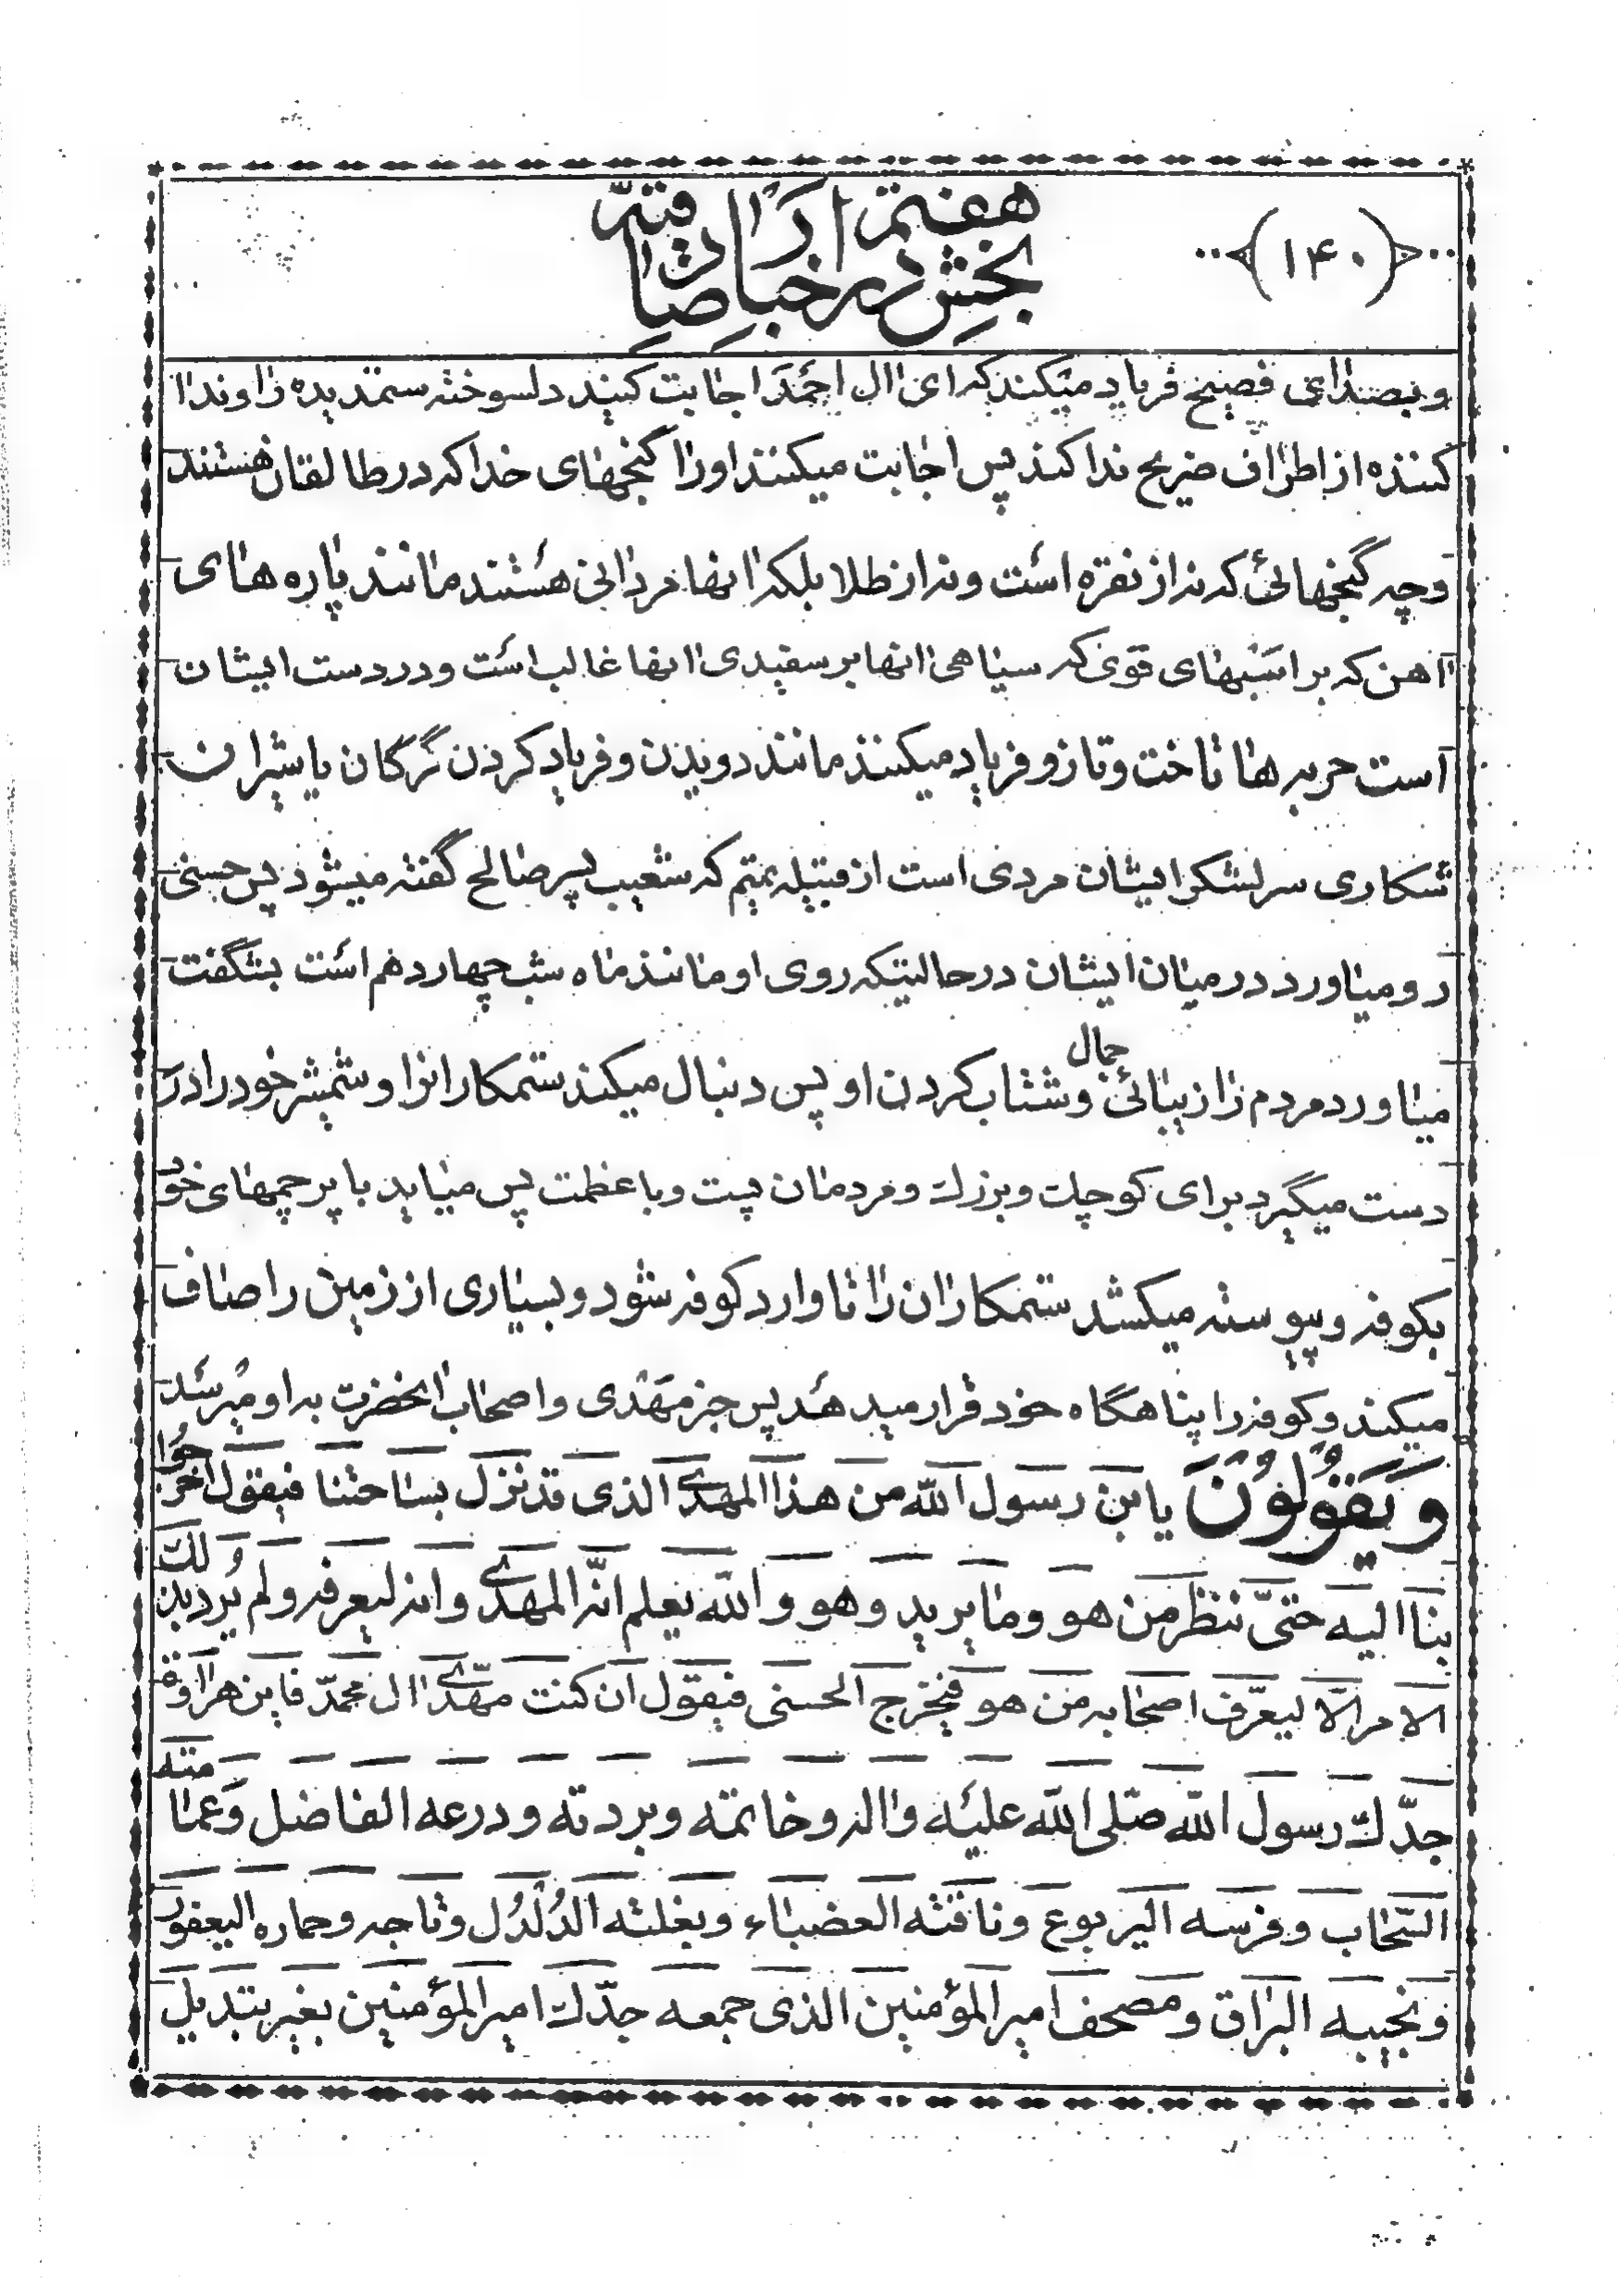 (۱۴۰)
بخش هفتم در اخبار صادقیّه
و بصدای فصیح فریاد میکند که ای آل احمد اجابت کنید دلسوخته ستمدیده را و ندا
کننده از اطراف ضریح ندا کند پس اجابت میکنند او را گنجهای خدا که در طالقان هستند
و چه گنجهائی که نه از نقره است و نه از طلا بلکه آنها مردانی هستند مانند پاره های
آهن که بر اسبهای قوی که سیاهی آنها بر سفیدی آنها غالب است و در دست ایشان
است حربه ها تاخت و تاز و فریاد میکنند مانند دویدن و فریاد کردن گرگان یا شیران
شکاری سر لشکر ایشان مردی است از قبیله تمیم که شعیب پسر صالح گفته میشود پس حسنی
رو میاورد در میان ایشان در حالتیکه روی او مانند ماه شب چهاردهم است بشگفت
میاورد مردم را زیبائی و جمال شتاب کردن او پس دنبال میکند ستمکارانرا و شمشیر خود را در
دست میگیرد برای کوچک و بزرگ و مردمان پست و با عظمت پس میاید با پرچمهای خود
بکوفه و پیوسته میکشد ستمکاران را تا وارد کوفه شود و بسیاری از زمین را صاف
میکند و کوفه را پناهگاه خود قرار میدهد پس خبر مهدی و اصحاب آنحضرت به او میرسد
وَ يَقُولُونَ يا بن رسول الله من هذا المهدی الذی قد نزل بساحتنا فيقول اخرجوا
بنا اليه حتّى ننظر من هو وما يريد و هو و الله يعلم انّه المهدی و انه ليعرفه و لم يُرد بذلك
الامر الّا ليعرّف اصحابه من هو فيخرج الحسنی فيقول ان كنت مهدی آل محمّد فاين هراوة
جدّك رسول الله صلّى الله عليه و اله و خاتمه و بردته و درعه الفاضل و عمامته
السّحاب و فرسه اليربوع و ناقته العضباء و بغلته الدُلْدُل و تاجه و حماره اليعفور
و نجيبه البراق و مصحف امير المؤمنين الذی جمعه جدّك امير المؤمنين بغير تبديل